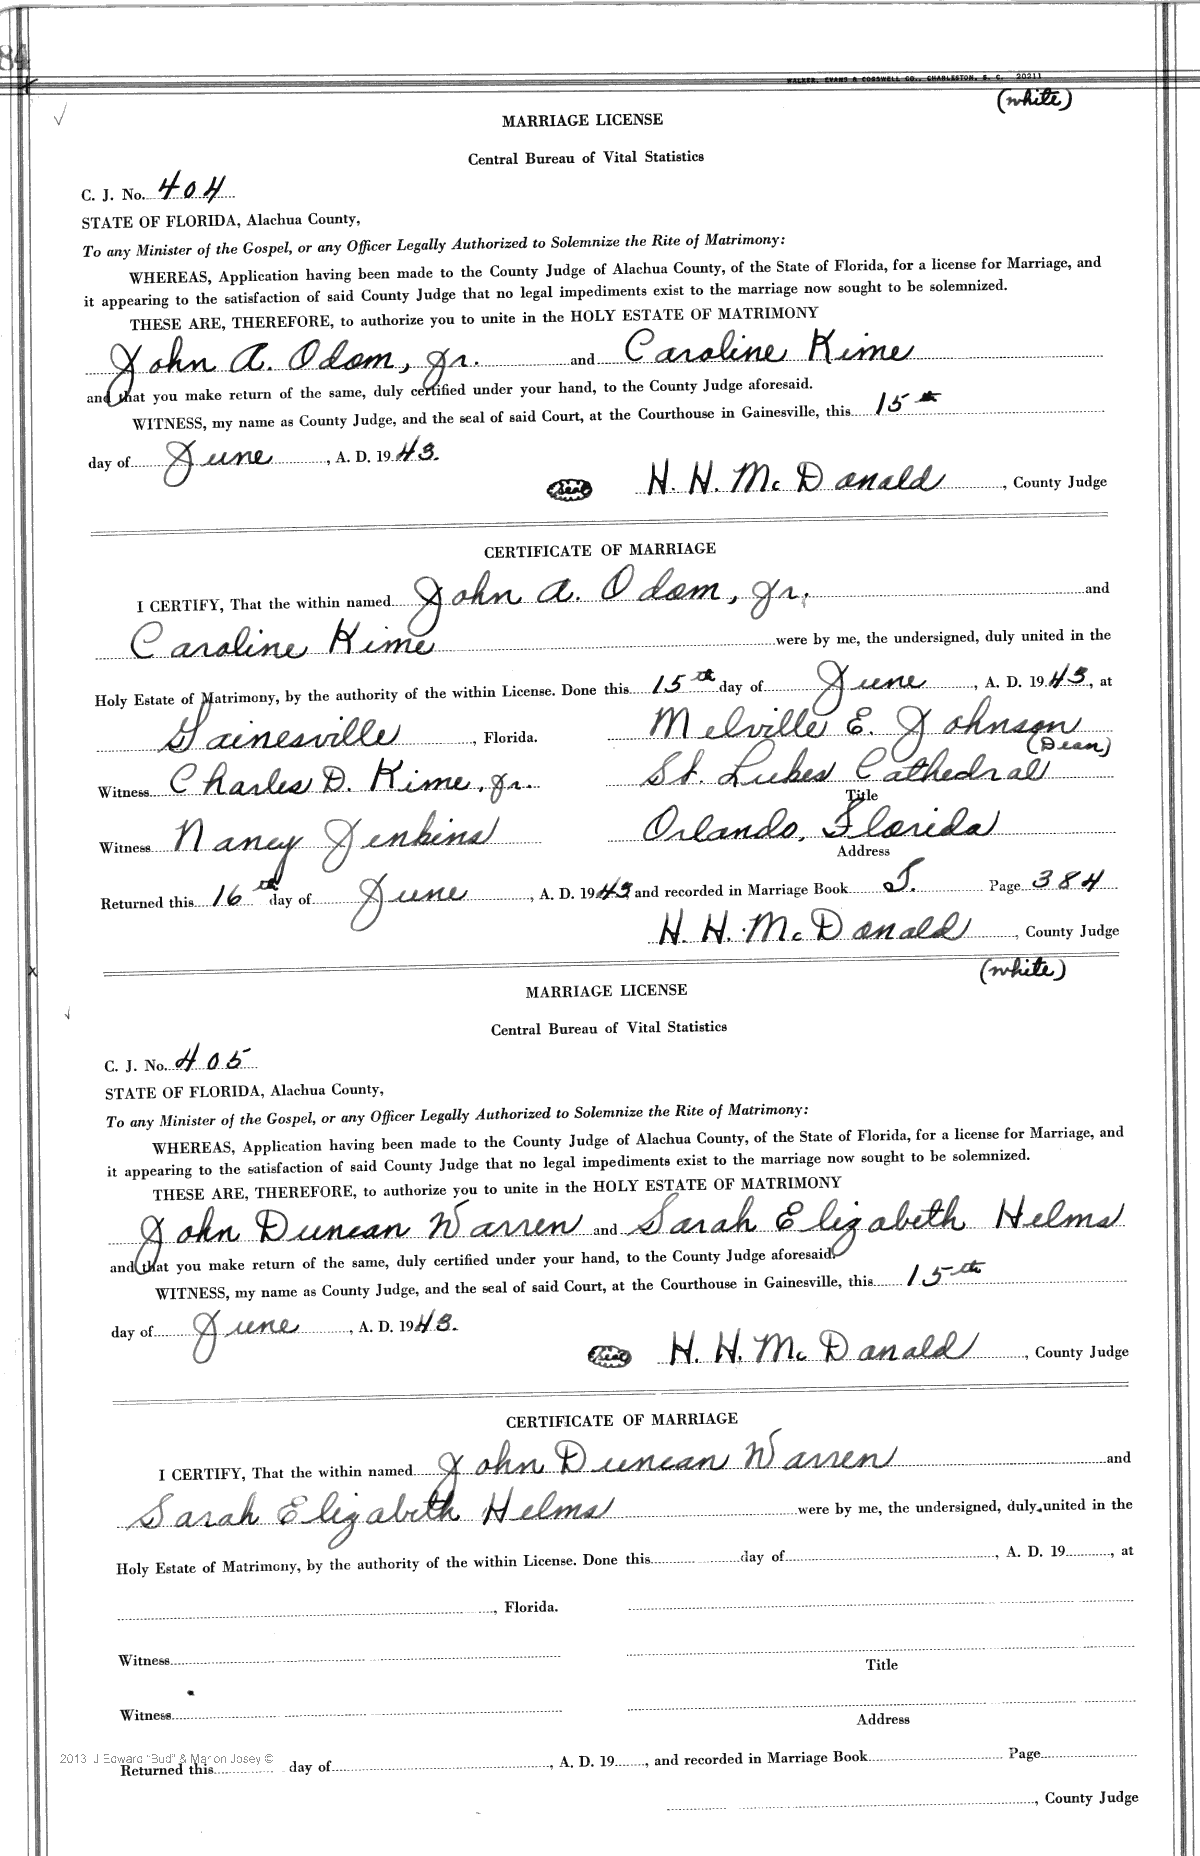 84
WALKER, EVANS & COGSWELL CO., CHARLESTON, S. C. 20211
(white)
MARRIAGE LICENSE
Central Bureau of Vital Statistics
C. J. No. 404
STATE OF FLORIDA, Alachua County,
To any Minister of the Gospel, or any Officer Legally Authorized to Solemnize the Rite of Matrimony:
WHEREAS, Application having been made to the County Judge of Alachua County, of the State of Florida, for a license for Marriage, and
it appearing to the satisfaction of said County Judge that no legal impediments exist to the marriage now sought to be solemnized.
THESE ARE, THEREFORE, to authorize you to unite in the HOLY ESTATE OF MATRIMONY
John A. Odom, Jr. and Caroline Kime
and that you make return of the same, duly certified under your hand, to the County Judge aforesaid.
WITNESS, my name as County Judge, and the seal of said Court, at the Courthouse in Gainesville, this 15th
day of June, A. D. 1943.
(seal) H. H. McDonald, County Judge
CERTIFICATE OF MARRIAGE
I CERTIFY, That the within named John A. Odom, Jr. and
Caroline Kime were by me, the undersigned, duly united in the
Holy Estate of Matrimony, by the authority of the within License. Done this 15th day of June, A. D. 1943, at
Gainesville, Florida. Melville E. Johnson
(Dean)
Witness Charles D. Kime, Jr. St. Lukes Cathedral
Title
Witness Nancy Jenkins Orlando, Florida
Address
Returned this 16th day of June, A. D. 1943 and recorded in Marriage Book 5. Page 384
H. H. McDonald, County Judge
(white)
MARRIAGE LICENSE
Central Bureau of Vital Statistics
C. J. No. 405
STATE OF FLORIDA, Alachua County,
To any Minister of the Gospel, or any Officer Legally Authorized to Solemnize the Rite of Matrimony:
WHEREAS, Application having been made to the County Judge of Alachua County, of the State of Florida, for a license for Marriage, and
it appearing to the satisfaction of said County Judge that no legal impediments exist to the marriage now sought to be solemnized.
THESE ARE, THEREFORE, to authorize you to unite in the HOLY ESTATE OF MATRIMONY
John Duncan Warren and Sarah Elizabeth Helms
and that you make return of the same, duly certified under your hand, to the County Judge aforesaid.
WITNESS, my name as County Judge, and the seal of said Court, at the Courthouse in Gainesville, this 15th
day of June, A. D. 1943.
(seal) H. H. McDonald, County Judge
CERTIFICATE OF MARRIAGE
I CERTIFY, That the within named John Duncan Warren and
Sarah Elizabeth Helms were by me, the undersigned, duly united in the
Holy Estate of Matrimony, by the authority of the within License. Done this day of, A. D. 19, at
, Florida.
Witness
Title
Witness
Address
2013 J Edward "Bud" & Marion Josey ©
Returned this day of, A. D. 19, and recorded in Marriage Book Page
, County Judge